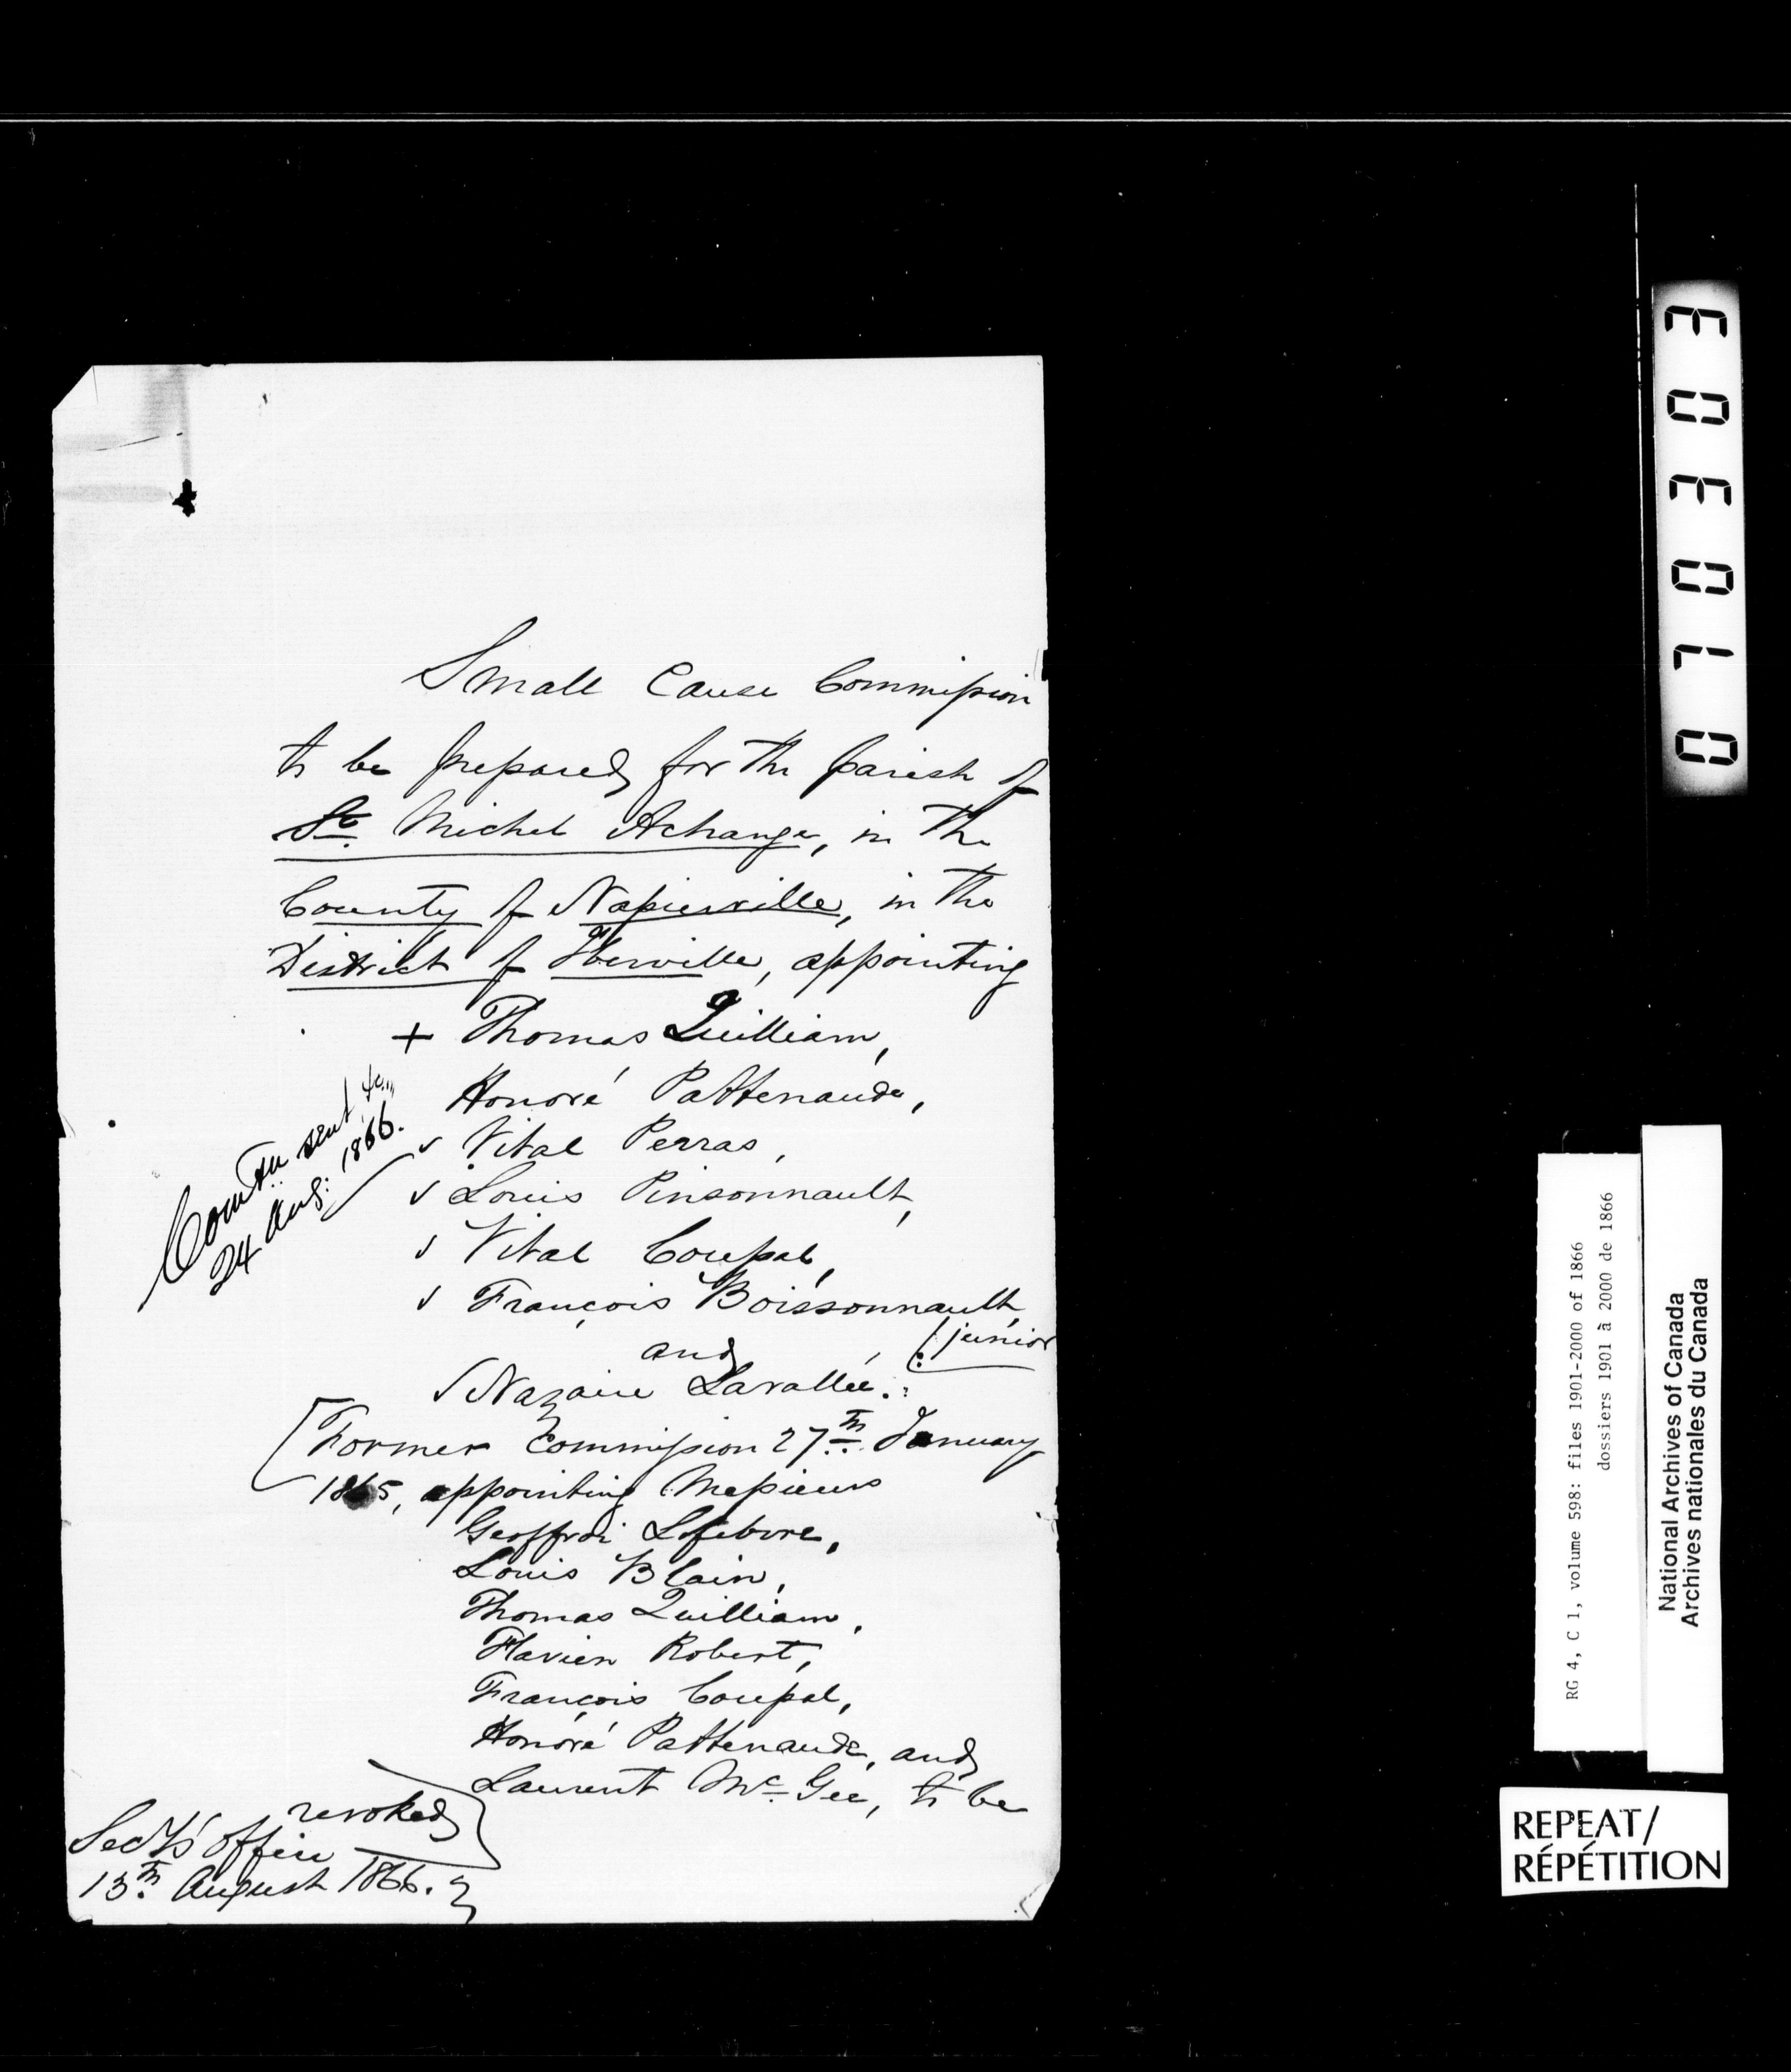 Small Cause Commission
to be prepared for the parish of
St. Michel Achange, in the
County of Napierville, in the
District of Iberville, appointing
+ Thomas Quilliam,
Honoré Pattenaude,
✓ Vital Perras,
✓ Louis Pinsonnault,
✓ Vital Coupal,
✓ François Boissonnault,
(junior
and
✓ Nazaire Lavallée.
Comtn sent &c.,
24 Aug: 1866.
[Former Commission 27th January
1865, appointing Messieurs
Geoffroi Lefebvre,
Louis Blain,
Thomas Quilliam,
Flavien Robert,
François Coupal,
Honoré Pattenaude, and
Laurent McGee, to be
revoked
Secty's Office
13th August 1866.
0 1 0 3 0 3
RG 4, C 1, volume 598: files 1901-2000 of 1866
dossiers 1901 à 2000 de 1866
National Archives of Canada
Archives nationales du Canada
REPEAT/
RÉPÉTITION